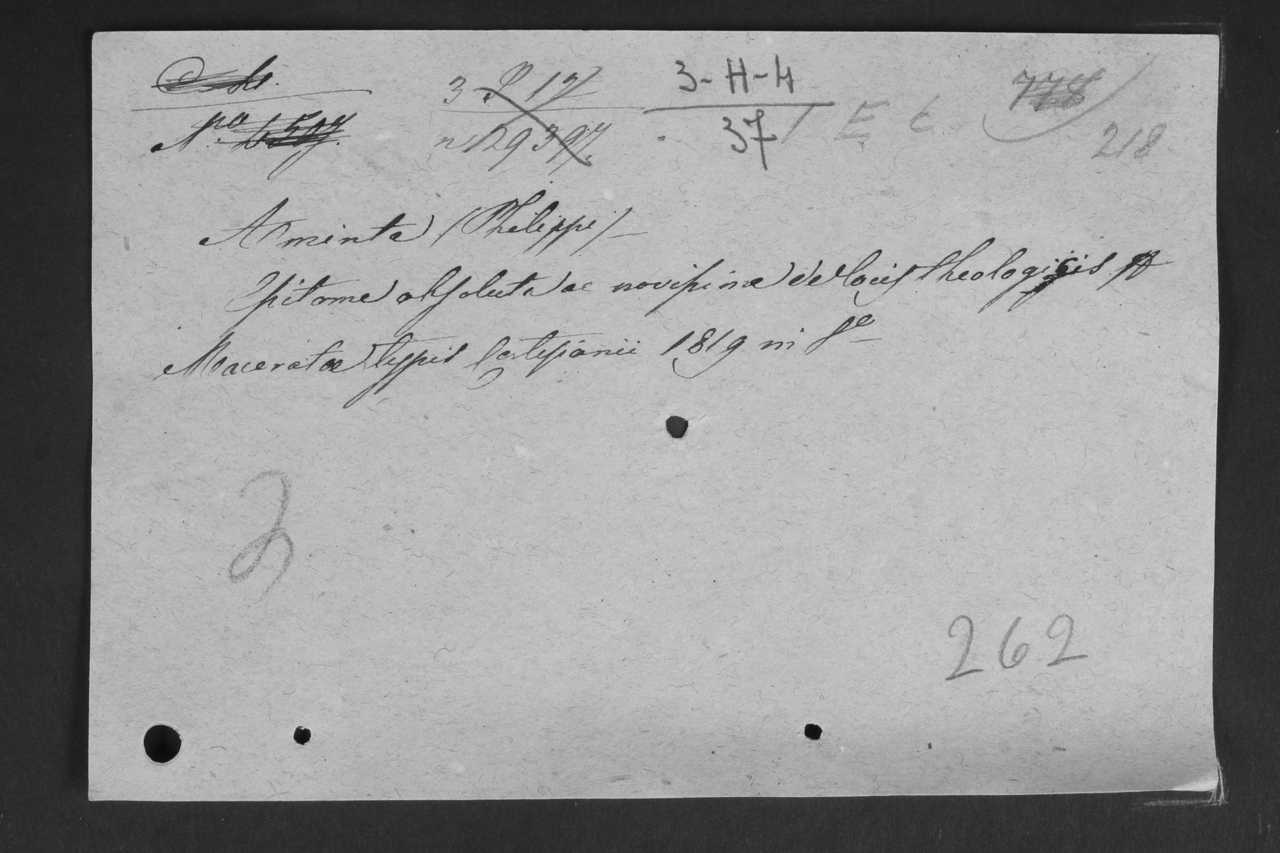 3 P 12 3-H-4 778
Nro 6507. n 29397. 37 E c 218
Aminta (Philippi)
Epitome absoluta ac novissima de locis theologicis
Maceratae typis Cortesianii 1819 in 8º
2
262